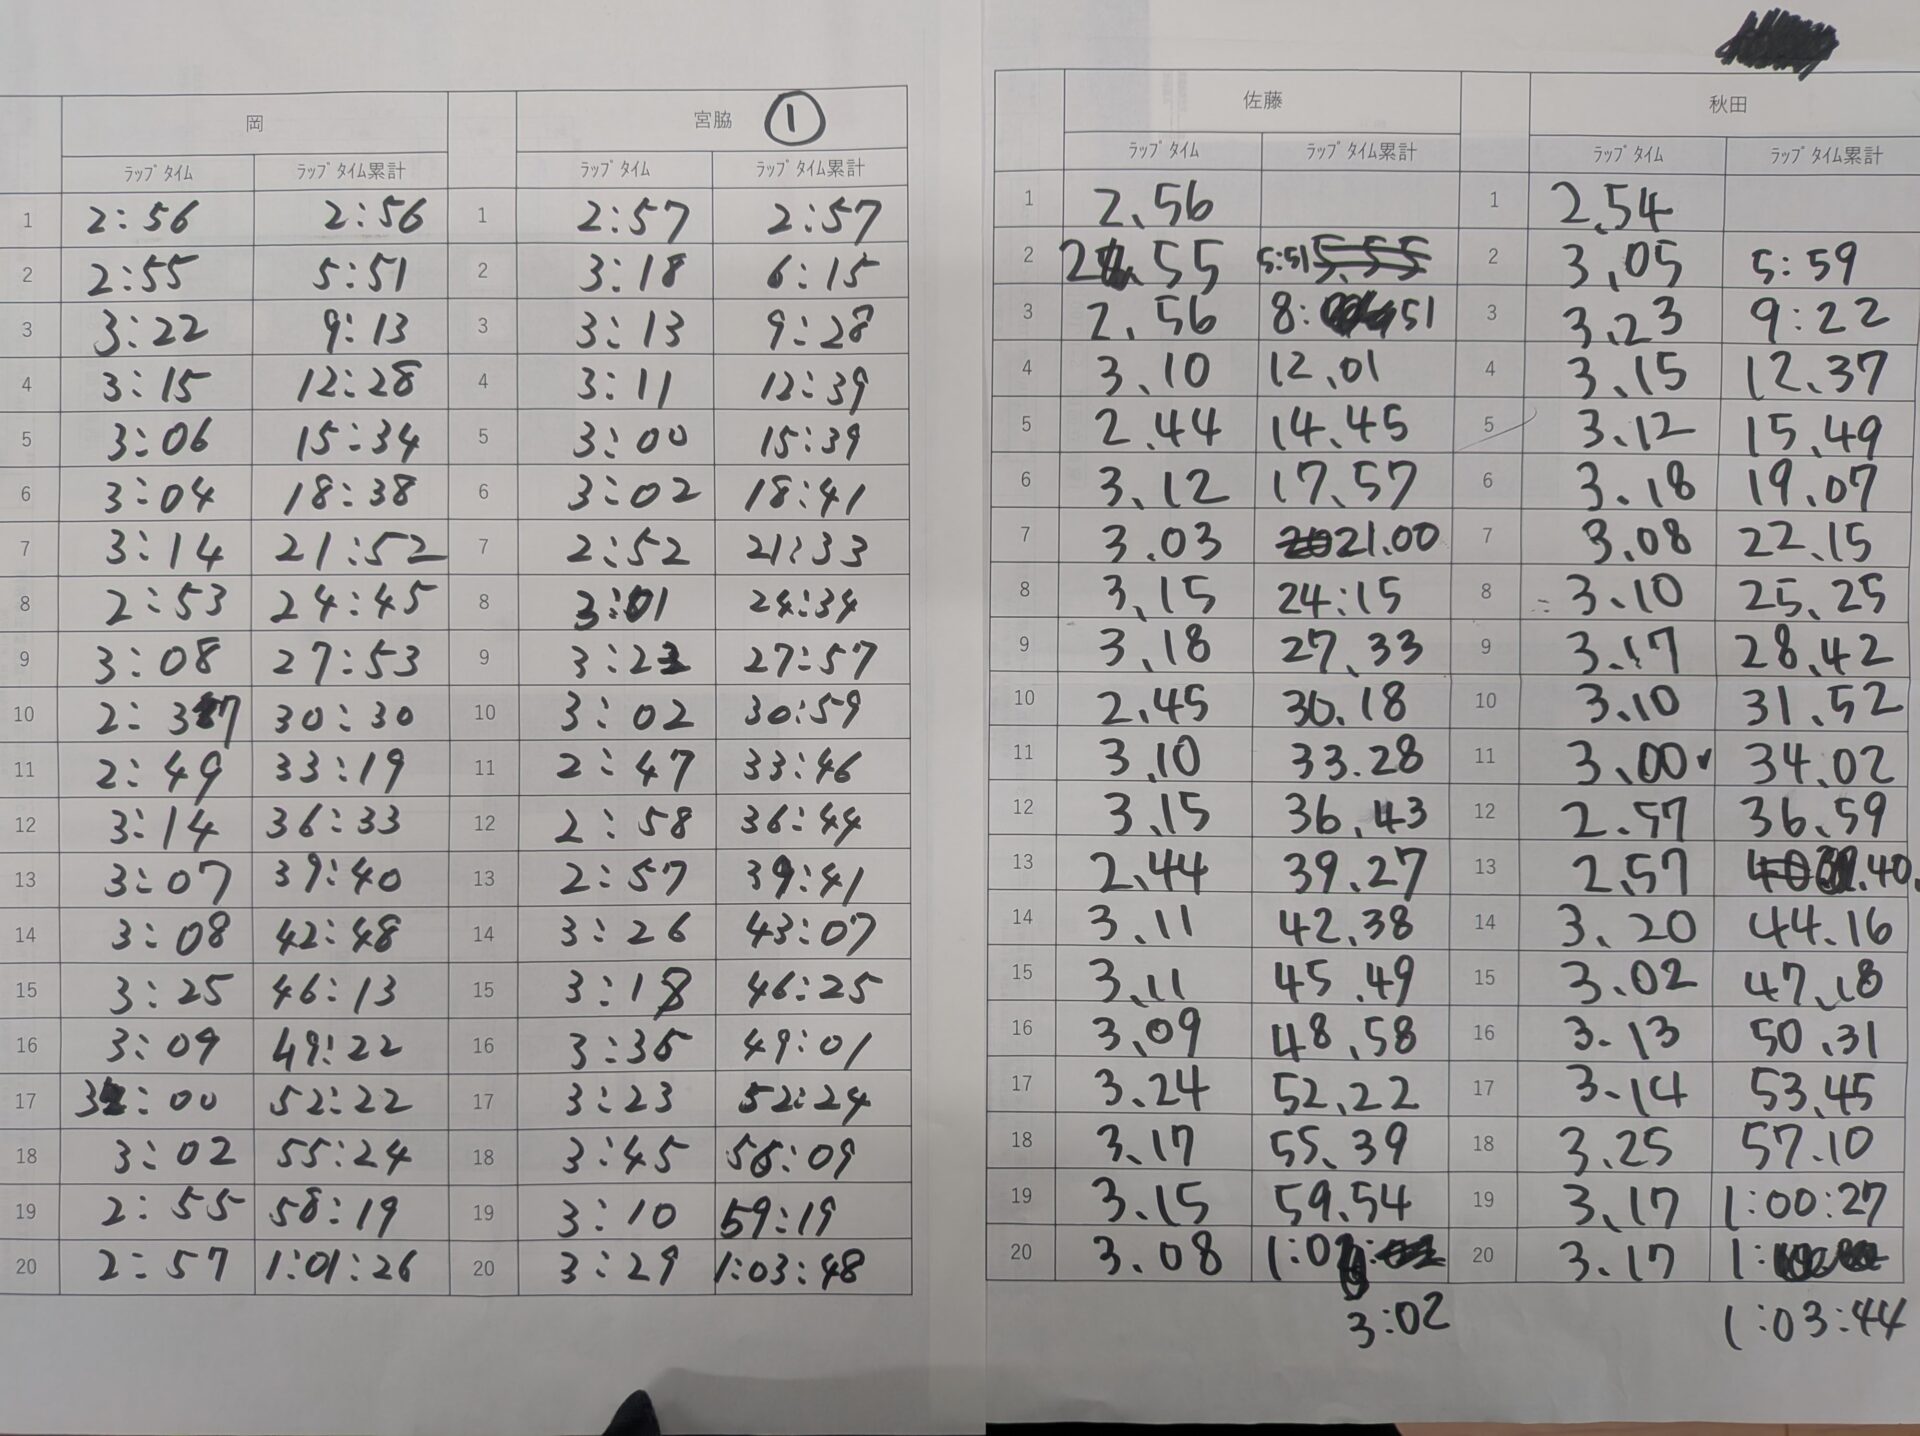 岡 宮脇 ①
ラップタイム ラップタイム累計 ラップタイム ラップタイム累計
1 2:56 2:56 1 2:57 2:57
2 2:55 5:51 2 3:18 6:15
3 3:22 9:13 3 3:13 9:28
4 3:15 12:28 4 3:11 12:39
5 3:06 15:34 5 3:00 15:39
6 3:04 18:38 6 3:02 18:41
7 3:14 21:52 7 2:52 21:33
8 2:53 24:45 8 3:01 24:34
9 3:08 27:53 9 3:23 27:57
10 2:37 30:30 10 3:02 30:59
11 2:49 33:19 11 2:47 33:46
12 3:14 36:33 12 2:58 36:44
13 3:07 39:40 13 2:57 39:41
14 3:08 42:48 14 3:26 43:07
15 3:25 46:13 15 3:18 46:25
16 3:09 49:22 16 3:36 49:01
17 3:00 52:22 17 3:23 52:24
18 3:02 55:24 18 3:45 56:09
19 2:55 58:19 19 3:10 59:19
20 2:57 1:01:26 20 3:29 1:03:48
佐藤 秋田
ラップタイム ラップタイム累計 ラップタイム ラップタイム累計
1 2.56 1 2.54
2 2.55 5:51 5.55 2 3.05 5:59
3 2.56 8:51 3 3.23 9:22
4 3.10 12.01 4 3.15 12.37
5 2.44 14.45 5 3.12 15.49
6 3.12 17.57 6 3.18 19.07
7 3.03 20 21.00 7 3.08 22.15
8 3.15 24:15 8 3.10 25.25
9 3.18 27.33 9 3.17 28.42
10 2.45 30.18 10 3.10 31.52
11 3.10 33.28 11 3.00 34.02
12 3.15 36.43 12 2.57 36.59
13 2.44 39.27 13 2.57 40 .40.
14 3.11 42.38 14 3.20 44.16
15 3.11 45.49 15 3.02 47.18
16 3.09 48.58 16 3.13 50.31
17 3.24 52.22 17 3.14 53.45
18 3.17 55.39 18 3.25 57.10
19 3.15 59.54 19 3.17 1:00:27
20 3.08 1:0 20 3.17 1:
3:02 1:03:44